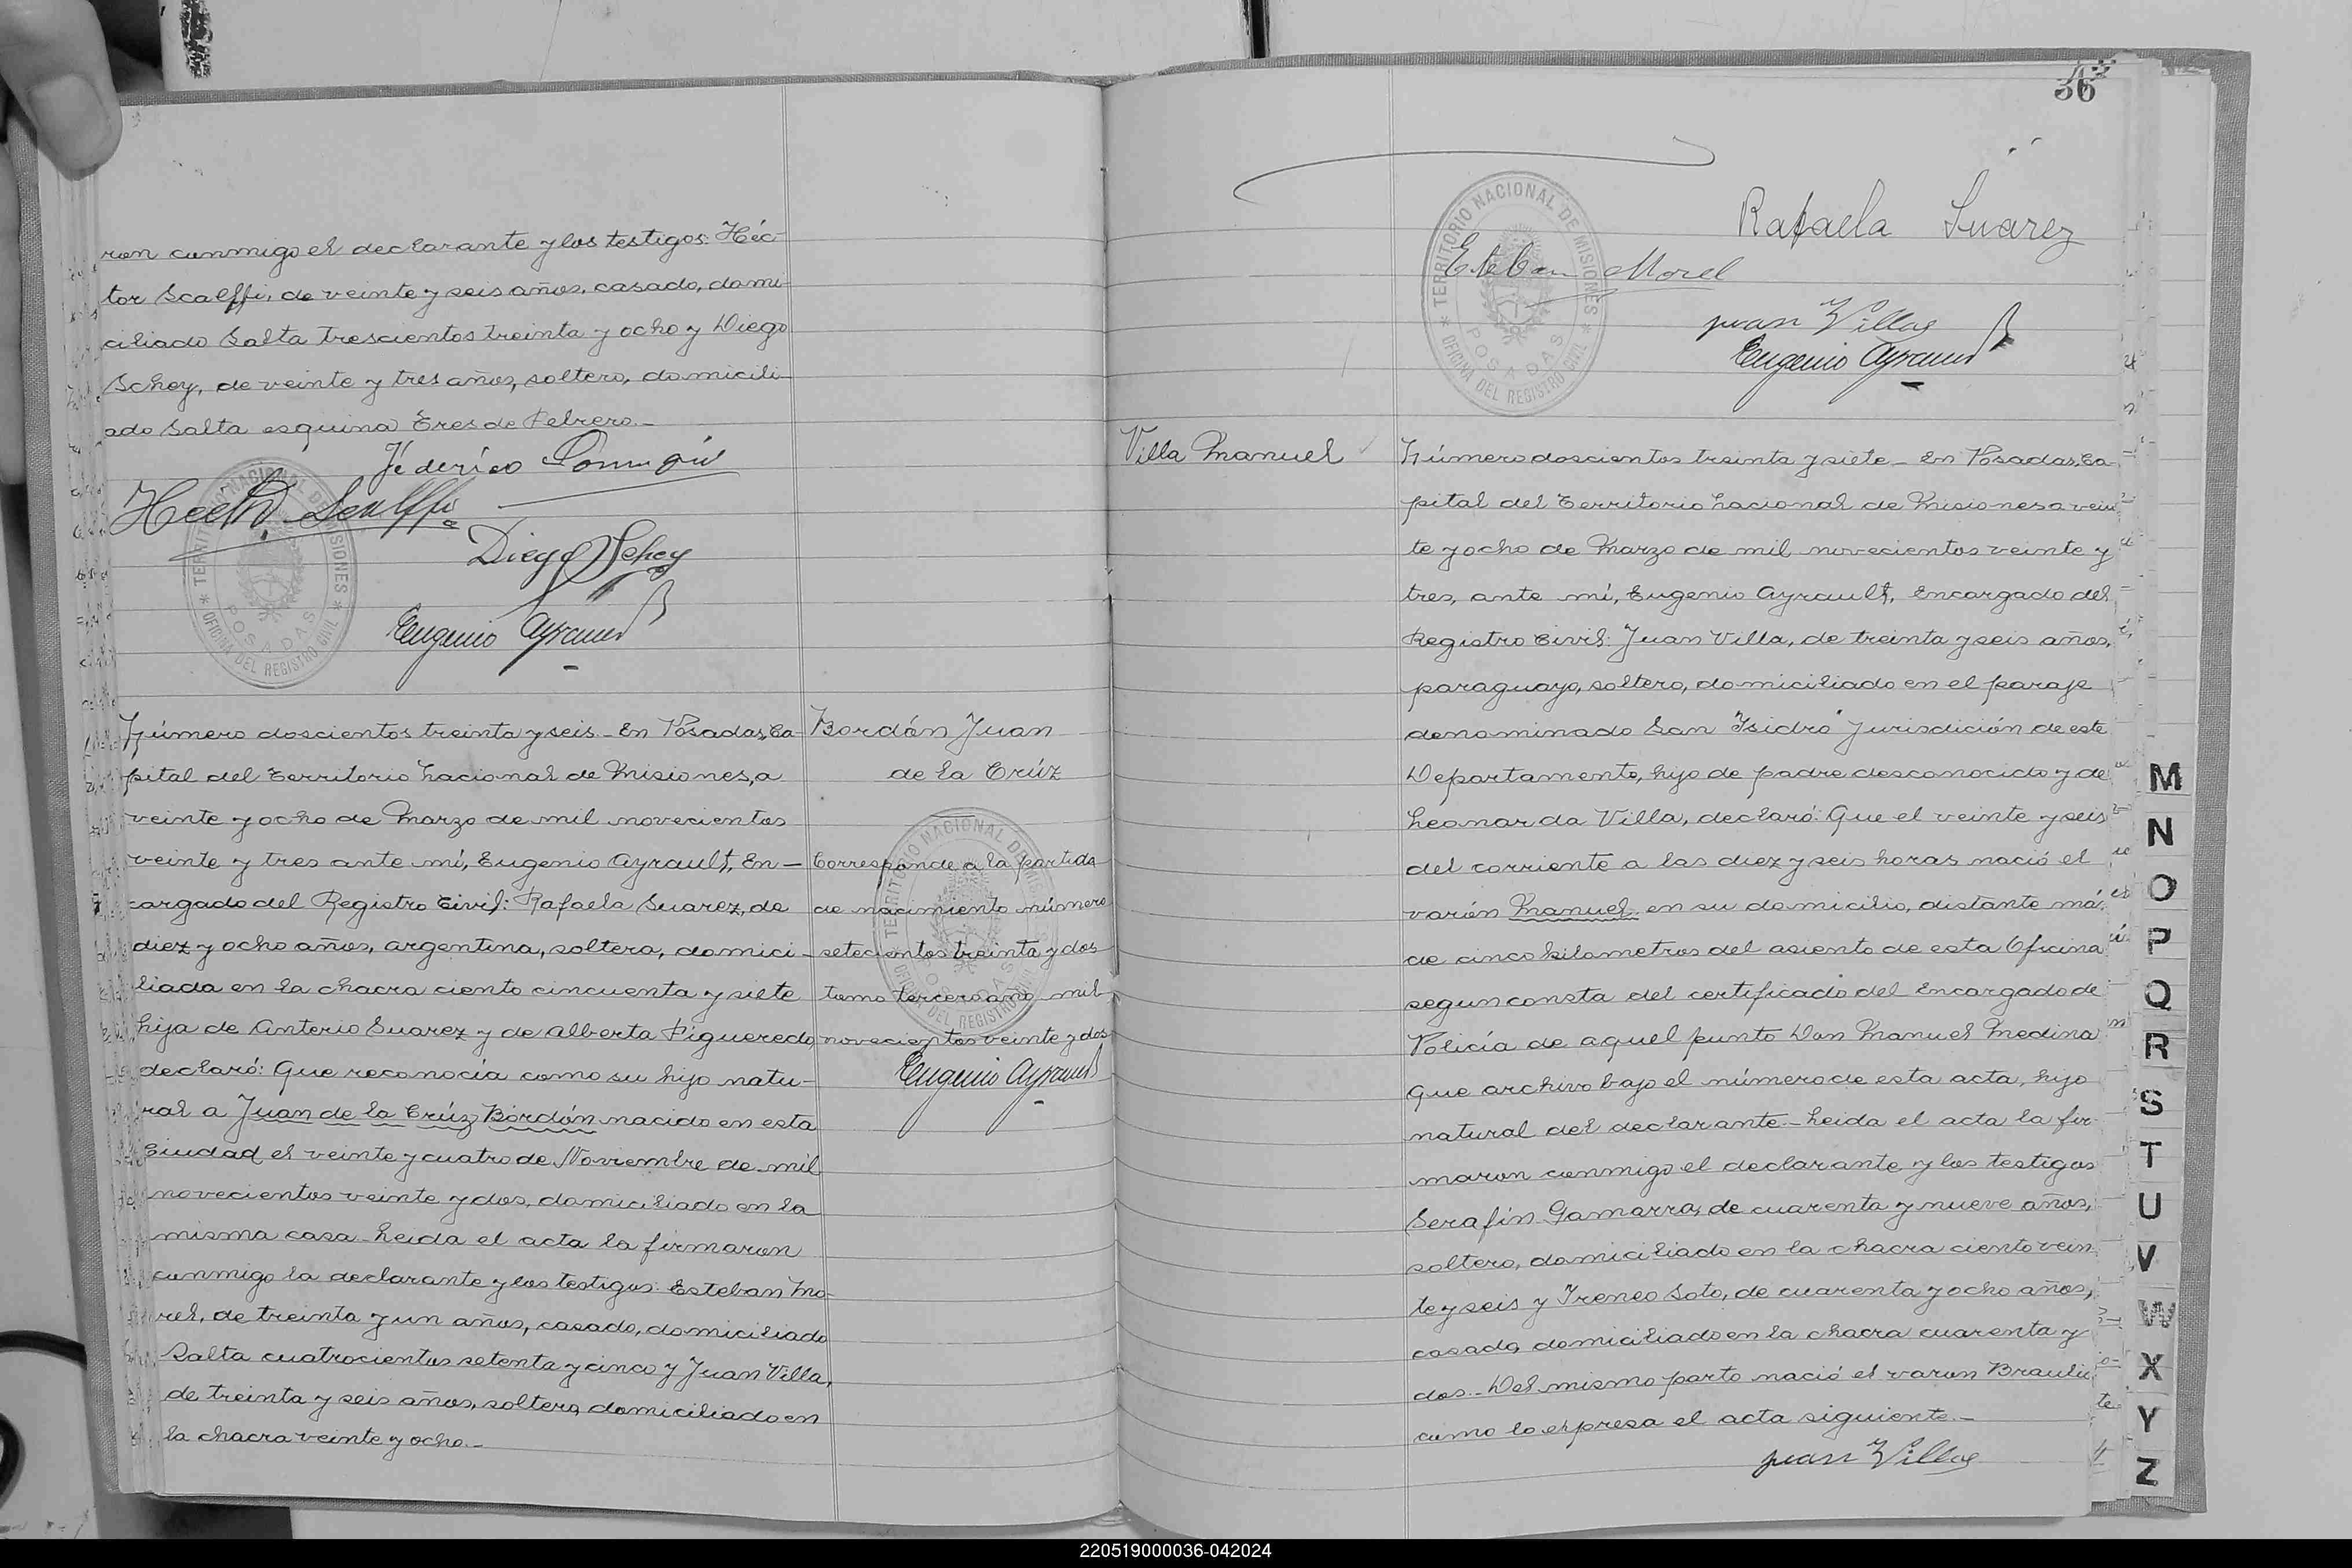 ron conmigo el declarante y los testigos: Héc-
tor Scalffi, de veinte y seis años, casado, domi-
ciliado Salta trescientos treinta y ocho y Diego
Schey, de veinte y tres años, soltero, domicili-
ado Salta esquina Tres de Febrero.-
Federico
Héctor Scalffi
Diego Schey
Eugenio Ayrault
TERRITORIO NACIONAL DE MISIONES
OFICINA DEL REGISTRO CIVIL
POSADAS
Número doscientos treinta y seis.- En Posadas, Ca-
pital del Territorio Nacional de Misiones, a
veinte y ocho de Marzo de mil novecientos
veinte y tres ante mí, Eugenio Ayrault, En-
cargado del Registro Civil: Rafaela Suarez, de
diez y ocho años, argentina, soltera, domici-
liada en la chacra ciento cincuenta y siete
hija de Anterio Suarez y de Alberta Figueredo,
declaró: Que reconocía como su hijo natu-
ral a Juan de la Crúz Bordón nacido en esta
Ciudad el veinte y cuatro de Noviembre de mil
novecientos veinte y dos, domiciliado en la
misma casa.- Leida el acta la firmaron
conmigo la declarante y los testigos: Esteban Mo-
rel, de treinta y un años, casado, domiciliado
Salta cuatrocientos setenta y cinco y Juan Villa,
de treinta y seis años, soltero, domiciliado en
la chacra veinte y ocho.-
Bordón Juan
de la Crúz
Corresponde a la partida
de nacimiento número
setecientos treinta y dos
tomo tercero año mil
novecientos veinte y dos
Eugenio Ayrault
TERRITORIO NACIONAL DE MISIONES
OFICINA DEL REGISTRO CIVIL
POSADAS
36
Rafaela Suárez
Esteban Morel
Juan Villa
Eugenio Ayrault
TERRITORIO NACIONAL DE MISIONES
OFICINA DEL REGISTRO CIVIL
POSADAS
Villa Manuel
Número doscientos treinta y siete.- En Posadas, Ca-
pital del Territorio Nacional de Misiones a vein
te y ocho de Marzo de mil novecientos veinte y
tres, ante mí, Eugenio Ayrault, Encargado del
Registro Civil: Juan Villa, de treinta y seis años,
paraguayo, soltero, domiciliado en el paraje
denominado San "Isidro" Jurisdición de este
Departamento, hijo de padre desconocido y de
Leonarda Villa, declaró: Que el veinte y seis
del corriente a las diez y seis horas nació el
varón Manuel en su domicilio, distante más
de cinco kilometros del asiento de esta Oficina
segun consta del certificado del Encargado de
Policía de aquel punto Don Manuel Medina
que archivo bajo el número de esta acta, hijo
natural del declarante.- Leida el acta la fir-
maron conmigo el declarante y los testigos
Serafín Gamarra, de cuarenta y nueve años,
soltero, domiciliado en la chacra ciento vein
te y seis y Ireneo Soto, de cuarenta y ocho años,
casado, domiciliado en la chacra cuarenta y
dos.- Del mismo parto nació el varon Braulio
como lo expresa el acta siguiente.-
Juan Villa
M
N
O
P
Q
R
S
T
U
V
W
X
Y
Z
220519000036-042024